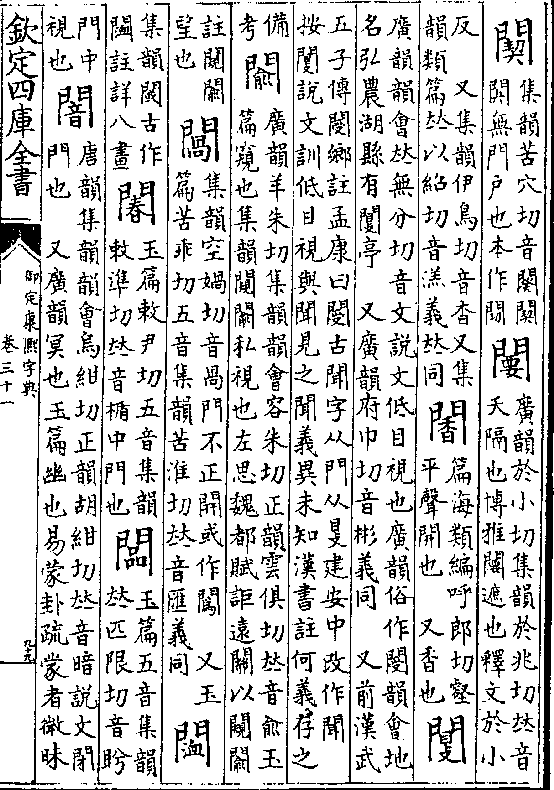 集韻苦穴切音闋闋
闃無門户也本作
闄
廣韻於小切集韻於兆切𠀤音
夭隔也博雅闄遮也釋文於小
反 又集韻伊鳥切音杳又集
韻類篇𠀤以紹切音溔義𠀤同
篇海類編呼郎切壑
平聲開也 又香也
閿
廣韻韻會𠀤無分切音文說文低目視也廣韻俗作閿韻會地
名弘農湖縣有閿亭 又廣韻府巾切音彬義同 又前漢武
五子傳閿鄉註孟康曰閿古聞字从門从建安中改作聞
按閿說文訓低目視與聞見之聞義異未知漢書註何義存之
備
考
廣韻羊朱切集韻韻會容朱切正韻雲俱切𠀤音俞玉
篇窺也集韻私視也左思魏都賦詎遠關以
註
望也
集韻空媧切音咼門不正開或作 又玉
篇苦乖切五音集韻苦淮切𠀤音匯義同
集韻古作
註詳八畫
玉篇敕尹切五音集韻
敕準切𠀤音楯中門也
玉篇五音集韻
𠀤匹限切音盻
門中
視也
闇
唐韻集韻韻會烏紺切正韻胡紺切𠀤音暗說文閉
門也 又廣韻冥也玉篇幽也易蒙卦疏蒙者微昧
欽定四庫全書
御定康熙字典
卷三十一